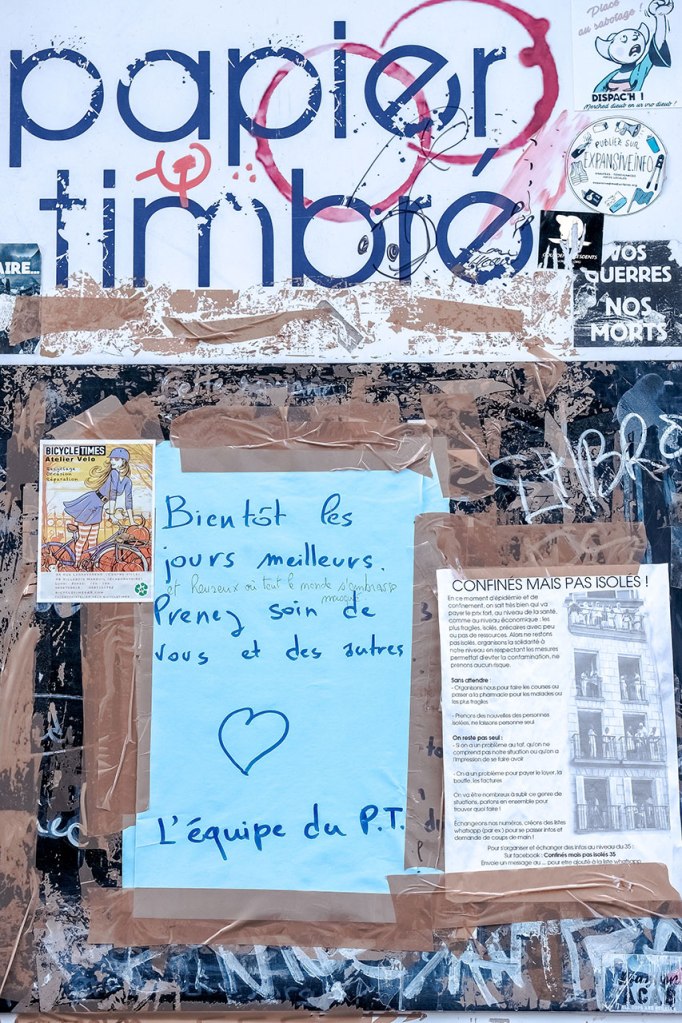 papier
timbré
Place
au sabotage !
DISPAC'H !
PUBLIEZ SUR
EXPANSIVE.INFO
AIRE...
VOS
GUERRES
NOS
MORTS
BICYCLE TIMES
Atelier Vélo
Recyclage
Occasion
Réparation
Bientôt les
jours meilleurs.
et heureux où tout le monde s'embrasse
Prenez soin de
vous et des autres
L'équipe du P.T.
CONFINÉS MAIS PAS ISOLÉS !
En ce moment d'épidémie et de
confinement, on sait très bien qui va
payer le prix fort, au niveau de la santé,
comme au niveau économique : les
plus fragiles, isolés, précaires avec peu
ou pas de ressources. Alors ne restons
pas isolé, organisons la solidarité à
notre niveau en respectant les mesures
permettant d'éviter la contamination, ne
prenons aucun risque.
Sans attendre :
- Organisons nous pour faire les courses ou
passer a la pharmacie pour les malades ou
les plus fragiles
- Prenons des nouvelles des personnes
isolées, ne laissons personne seul
On reste pas seul :
- Si on a un problème au taf, qu'on ne
comprend pas notre situation ou qu'on a
l'impression de se faire avoir
- On a un problème pour payer le loyer, la
bouffe, les factures
On va être nombreux à subir ce genre de
situations, parlons en ensemble pour
trouver quoi faire !
Échangeons nos numéros, créons des listes
whatsapp (par ex) pour se passer infos et
demande de coups de main !
Pour s'organiser et échanger des infos au niveau du 35 :
Sur facebook : Confinés mais pas isolés 35
Envoie un message au ... pour etre ajouté à la liste whatsapp